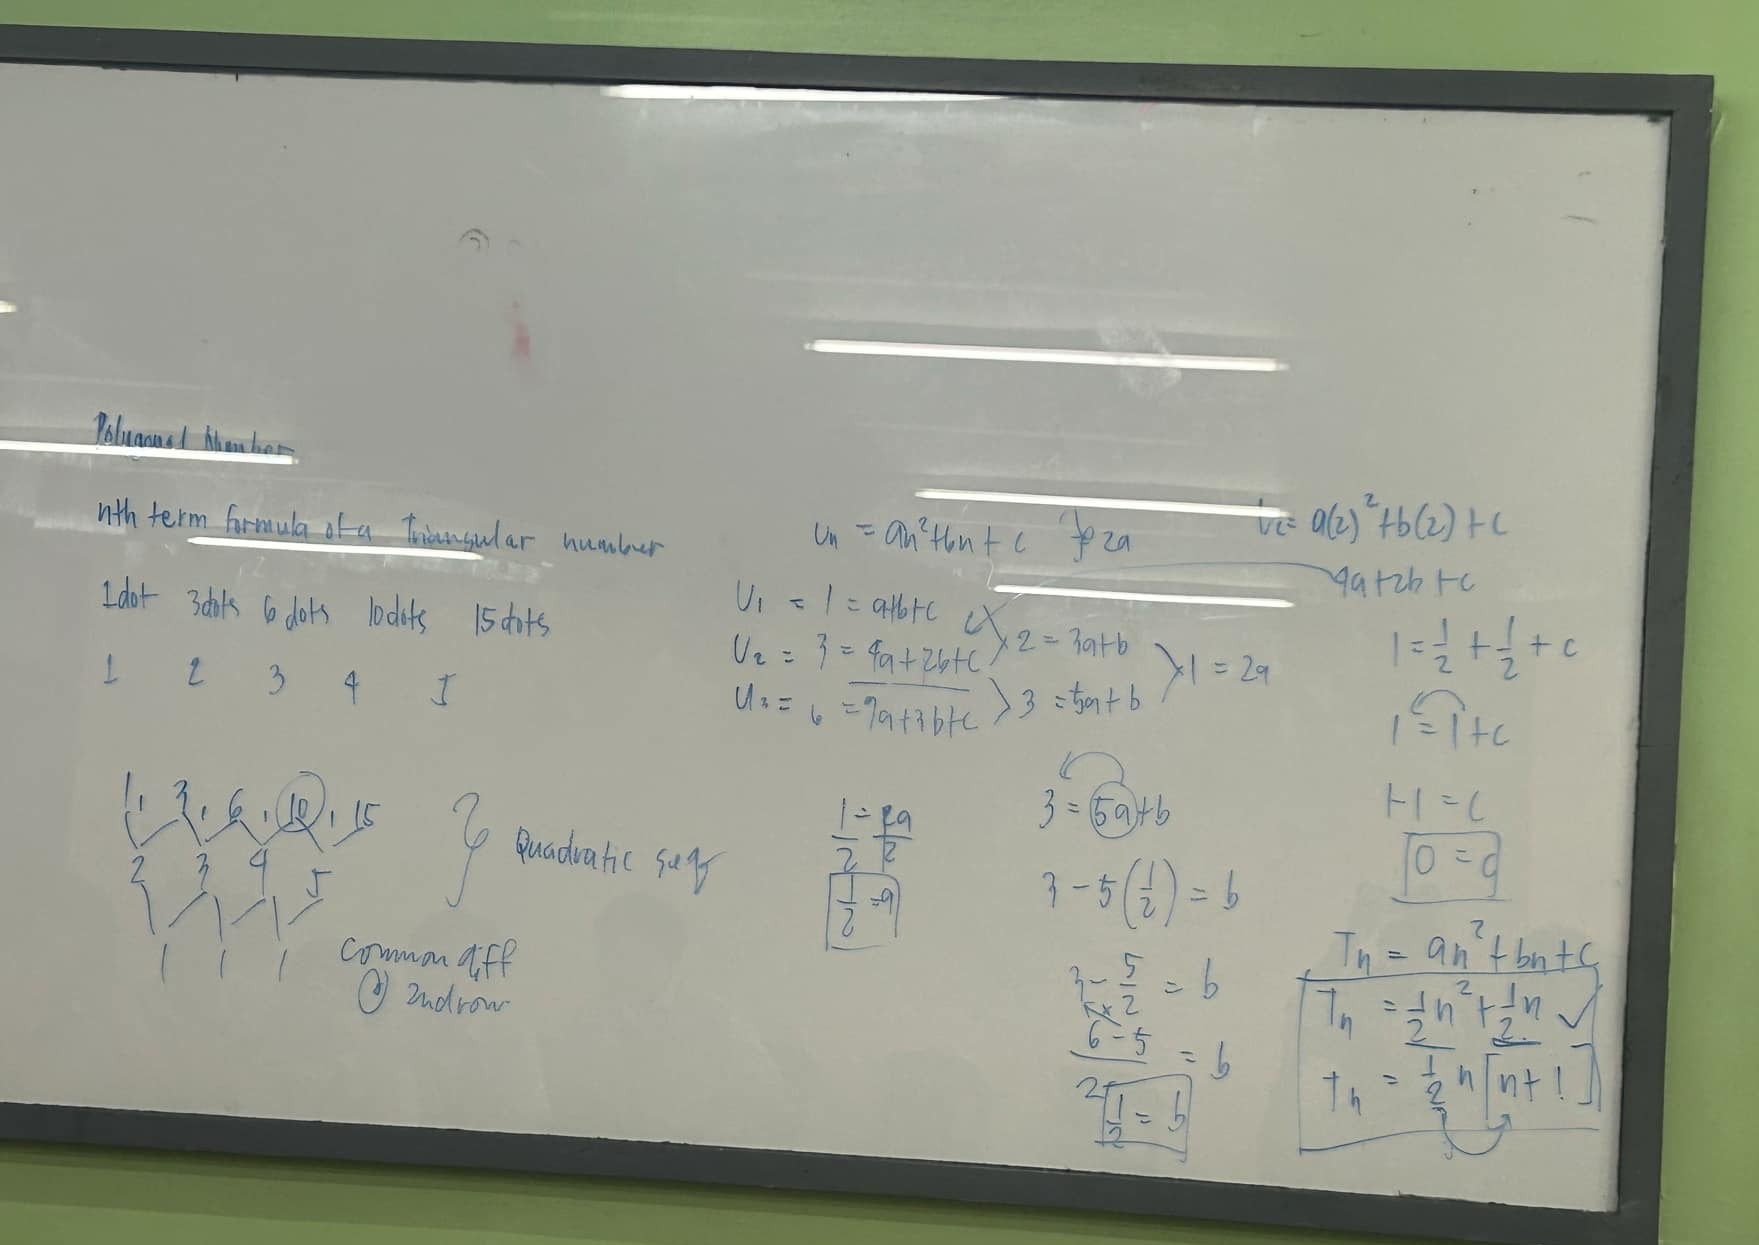 Polygonal Number
nth term formula of a Triangular number
1dot 3dots 6 dots 10dots 15dots
1 2 3 4 5
1, 3, 6, 10, 15
2 3 4 5
1 1 1
Quadratic seq
Common diff
@ 2nd row
Un = an²+bn+c
2a
U₁ = 1 = a+b+c
U₂ = 3 = 4a+2b+c
U₃ = 6 = 9a+3b+c
2 = 3a+b
3 = 5a+b
1 = 2a
U₂= a(2)²+b(2)+c
4a+2b+c
1/2 = 2a/2
1/2 = a
3 = 5a+b
3-5(1/2) = b
3-5/2 = b
(6-5)/2 = b
1/2 = b
1=1/2+1/2+c
1=1+c
1-1=c
0=c
Tn = an²+bn+c
Tn = 1/2n²+1/2n ✓
Tn = 1/2 n[n+1]